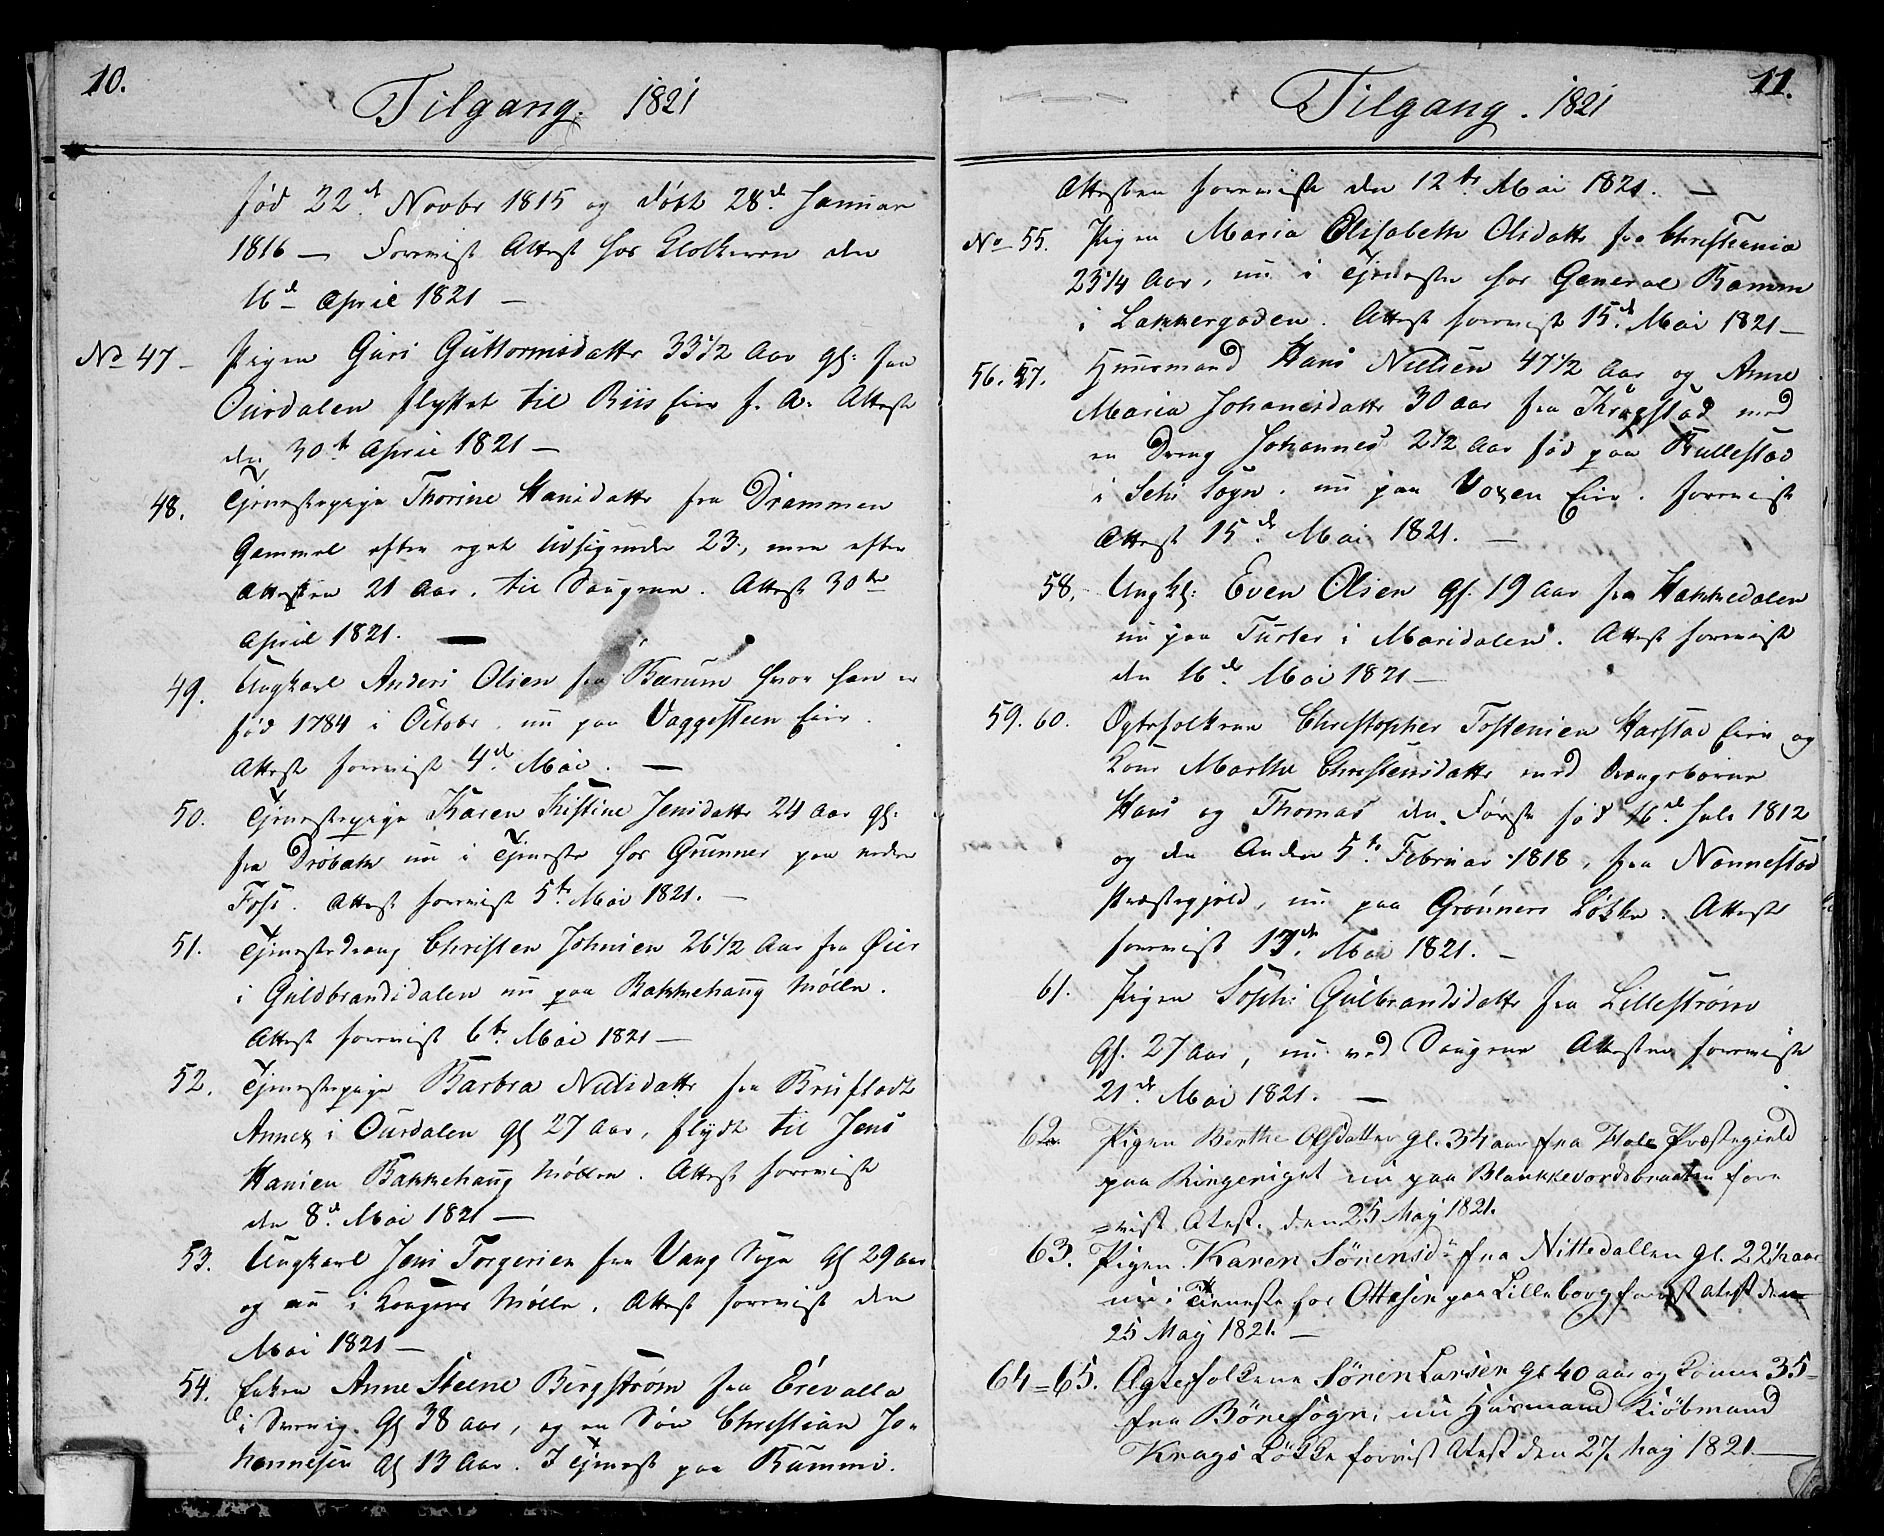 10.
Tilgang. 1821
fød 22d Novbr 1815 og døbt 28d Januar
1816 — Foreviist Attest hos Klokkeren den
16d April 1821 —
No 47 — Pigen Guri Guttormsdatter 33 1/2 Aar gl: fra
Ourdalen flyttet til Riis Eier f. A. Attest
den 30t April 1821 —
48. Tjenestepige Thorine Hansdatter fra Drammen
Gammel efter eget Udsigende 23, men efter
Attesten 21 Aar, til Saugene. Attest 30te
April 1821. —
49. Ungkarl Anders Olsen fra Bærum hvor han er
fød 1784 i Octobr. nu paa Vaggesteen Eier.
Attest foreviist 4d Mai. —
50. Tjenestepige Karen Kistine Jensdatter 24 Aar gl:
fra Drøbak nu i Tjeneste hos Gunner paa nedre
Foss. Attest foreviist 5te Mai 1821. —
51. Tjenestedreng Christen Johnsen 26 1/2 Aar fra Øier
i Guldbrandsdalen nu paa Bakkehaug Mølle.
Attest foreviist 6te Mai 1821 —
52. Tjenestepige Barbra Nilsdatter fra Brufladt
Annex i Ourdalen gl 27 Aar, flydt til Jens
Hansen Bakkehaug Møllen. Attest foreviist
den 8d Mai 1821 —
53. Ungkarl Jens Torgersen fra Vang Sogn gl 29 aar
og nu i Kongens Mølle. Attest foreviist den
Mai 1821 —
54. Enken Anne Steene Bergstrøm fra Erevalla
i Sverig. gl 38 aar, og en Søn Christian Jo-
hannesen gl 13 Aar. I Tjenest paa
11.
Tilgang. 1821
Attesten foreviist den 12te Mai 1821. —
No 55. Pigen Maria Elisabeth Olsdatter fra Christiania
23 1/4 Aar, nu i Tjeneste hos General
i Lakkergaden. Attest foreviist 15d Mai 1821 —
56. 57. Huusmand Hans Nielsen 47 1/2 Aar og Anne
Maria Johanesdatter 30 aar fra Krogstad med
en Dreng Johannes 2 1/2 Aar fød paa Kullestad
i Sogn. nu paa Voxen Eier. foreviist
Attest 15de Mai 1821. —
58. Ungkl: Even Olsen gl. 19 Aar fra Hakkedalen
nu paa Turter i Maridalen. Attest foreviist
den 16de Mai 1821 —
59. 60. Egtefolkene Christopher Tostensen Harstad Eier og
Kone Marthe Christensdatter med Drengebørne
Hans og Thomas den Første fød 16d Juli 1812
og den Anden 5te Februar 1818, fra Nannestad
Præstegjeld, nu paa Grønners Løkke. Attest
foreviist 17de Mai 1821. —
61. Pigen Sophi Gulbrandsdatter fra Lillestrøm
gl. 27 Aar, nu ved Saugene Attesten foreviist
21de Mai 1821. —
62. Pigen Berthe Olsdatter gl. 34 aar fra Hole Præstegield
paa Ringeriget nu paa Blankkevardsbraaten fore
=vist Atest. den 25 Maj 1821.
63. Pigen Karen Sørensdr fra Nittedallen gl. 22 1/2 aar
nu i Tieneste hos Ottesen paa Lilleborg forvist Atest den
25 Maj 1821. —
64=65. Ægtefolkene Søren Larsen gl 40 aar og Konne 35=
fra Bøne sogn, nu Husmand Kiøbmand
Knags Løkke forvist Atest den 27. Maj 1821 —